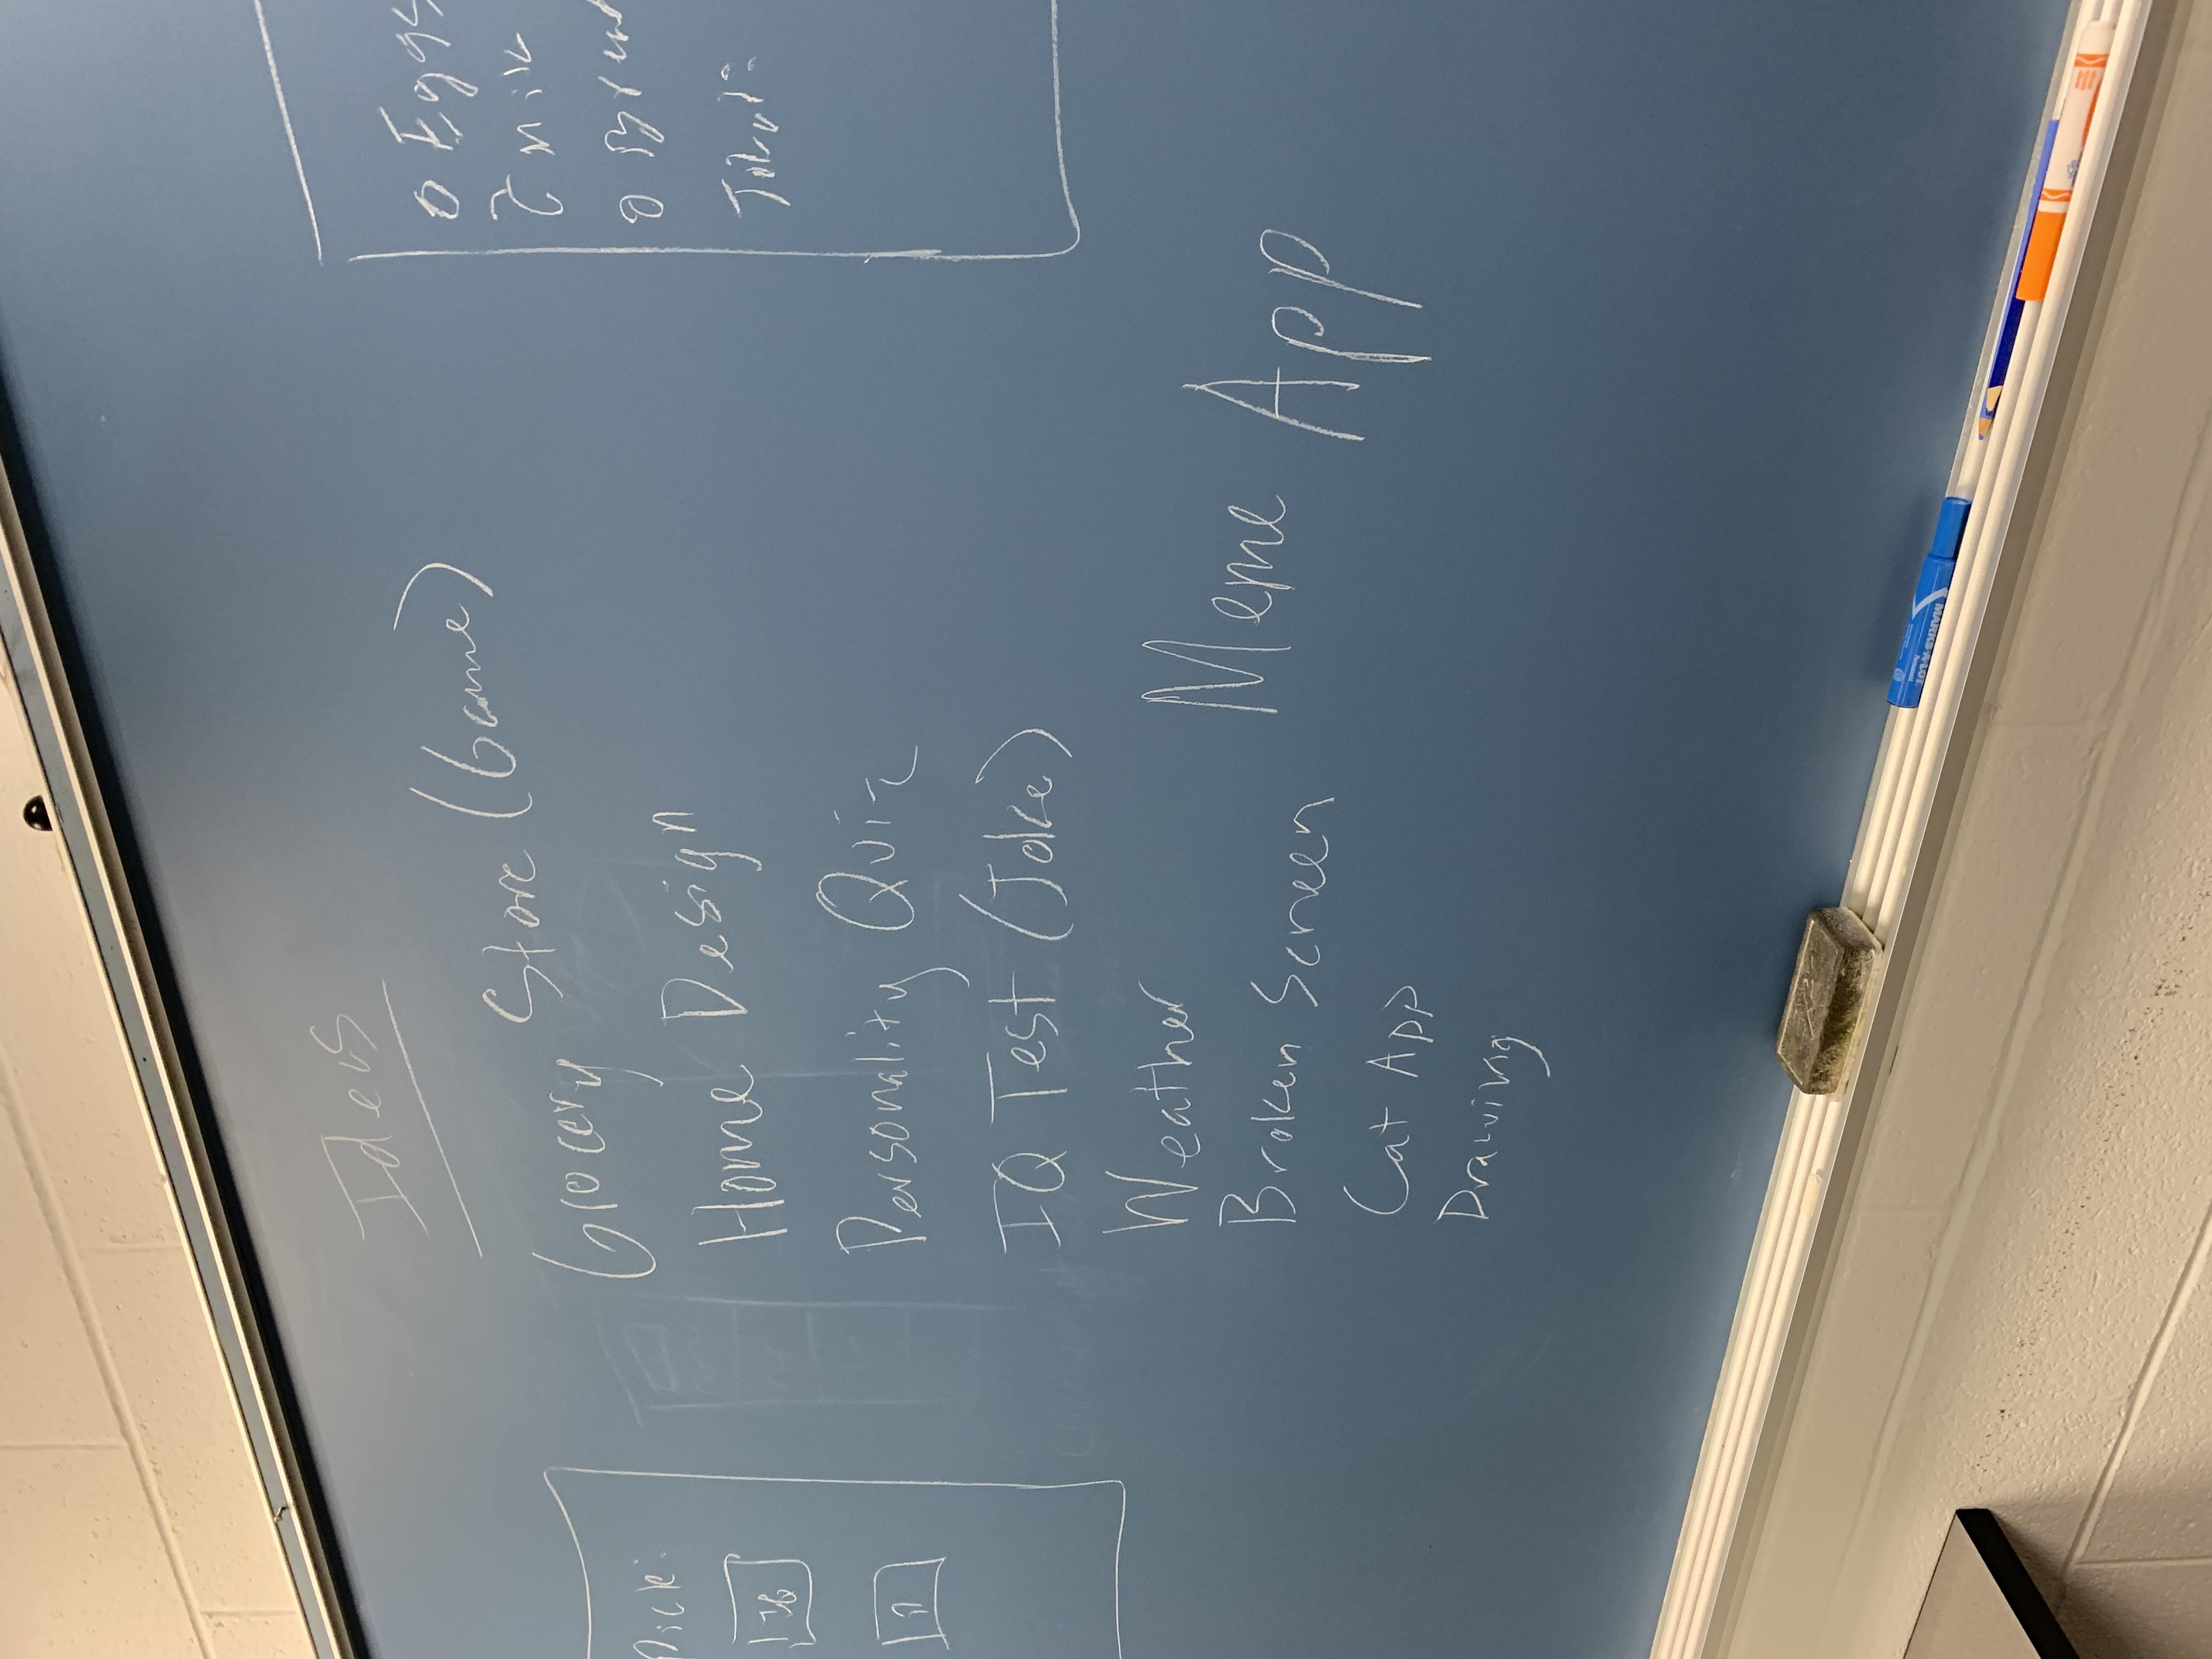 Ideas
Grocery Store (Game)
Home Design
Personality Quiz
IQ Test (Joke)
Weather
Broken Screen
Cat App
Drawing
Meme App
Pick:
Eggs
Total:
MARKS-A-LOT